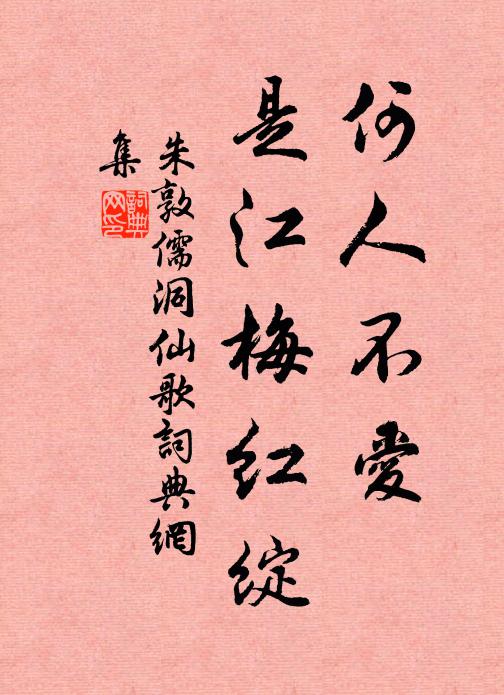 何人不愛
是江梅紅綻
朱敦儒洞仙歌詞典網
集
詞典
网印